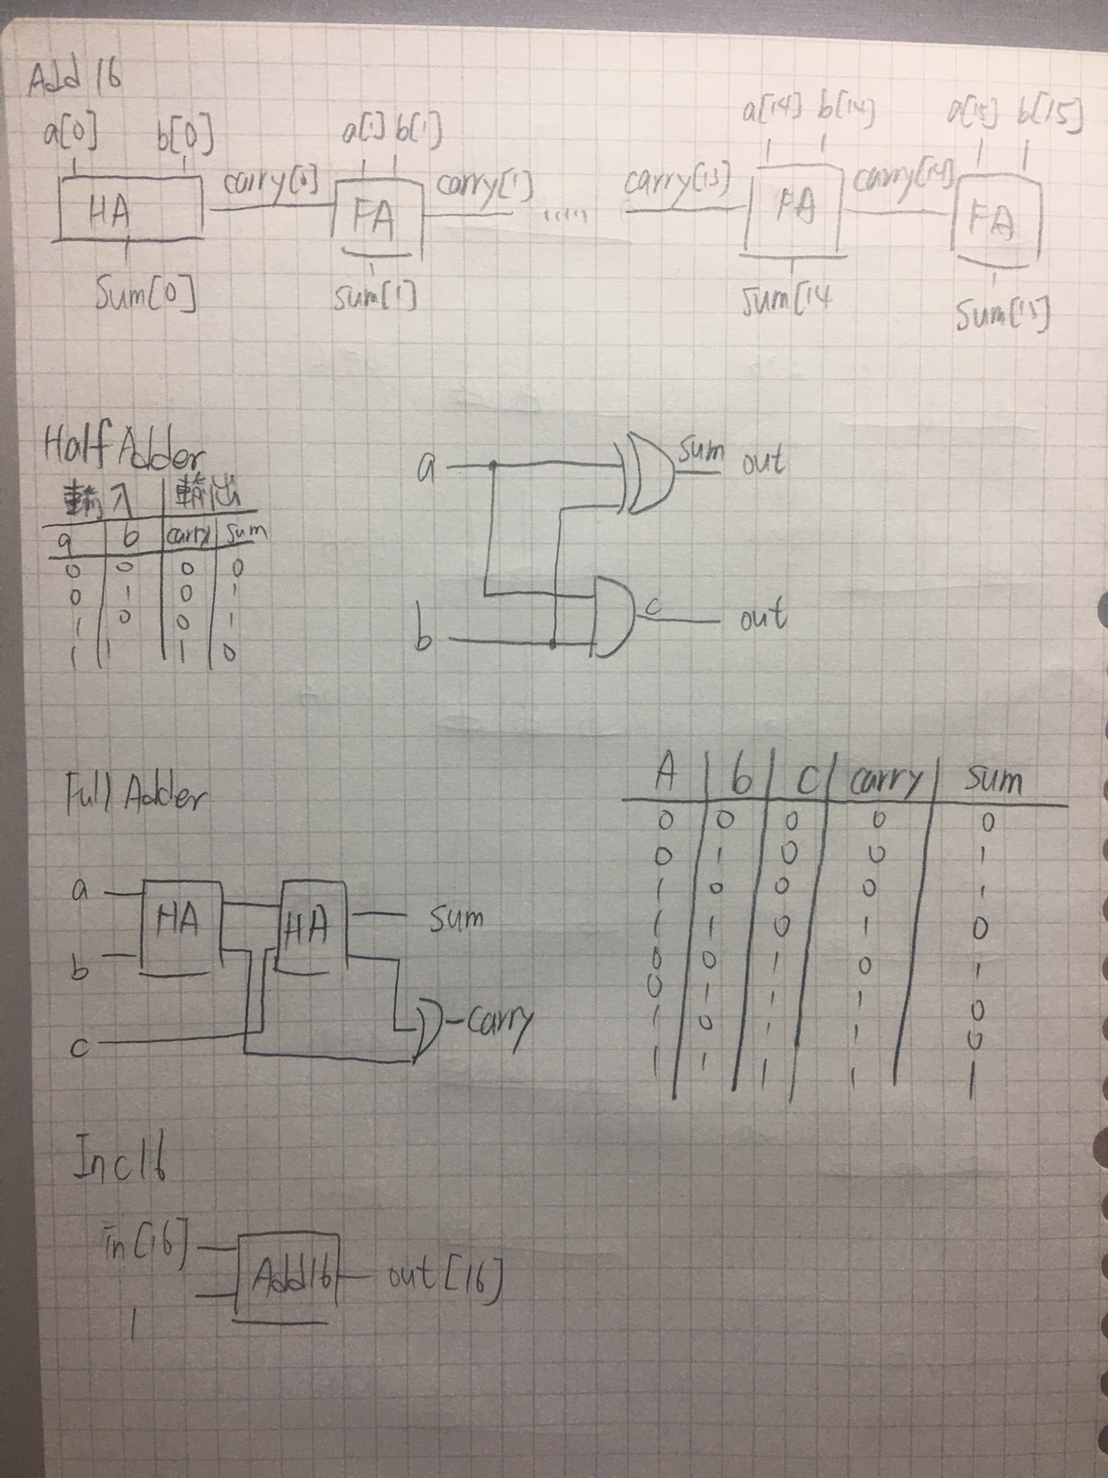 Add 16
a[0] b[0] a[1] b[1] a[14] b[14] a[15] b[15]
HA carry[0] FA carry[1] ..... carry[13] FA carry[14] FA
Sum[0] sum[1] sum[14 sum[15]
Half Adder
輸入 輸出
a b carry sum
0 0 0 0
0 1 0 1
1 0 0 1
1 1 1 0
a sum out
b c out
Full Adder
a HA HA sum
b
c carry
A b c carry sum
0 0 0 0 0
0 1 0 0 1
1 0 0 0 1
1 1 0 1 0
0 0 1 0 1
0 1 1 1 0
1 0 1 1 0
1 1 1 1 1
Inc16
in[16] Add16 out[16]
1